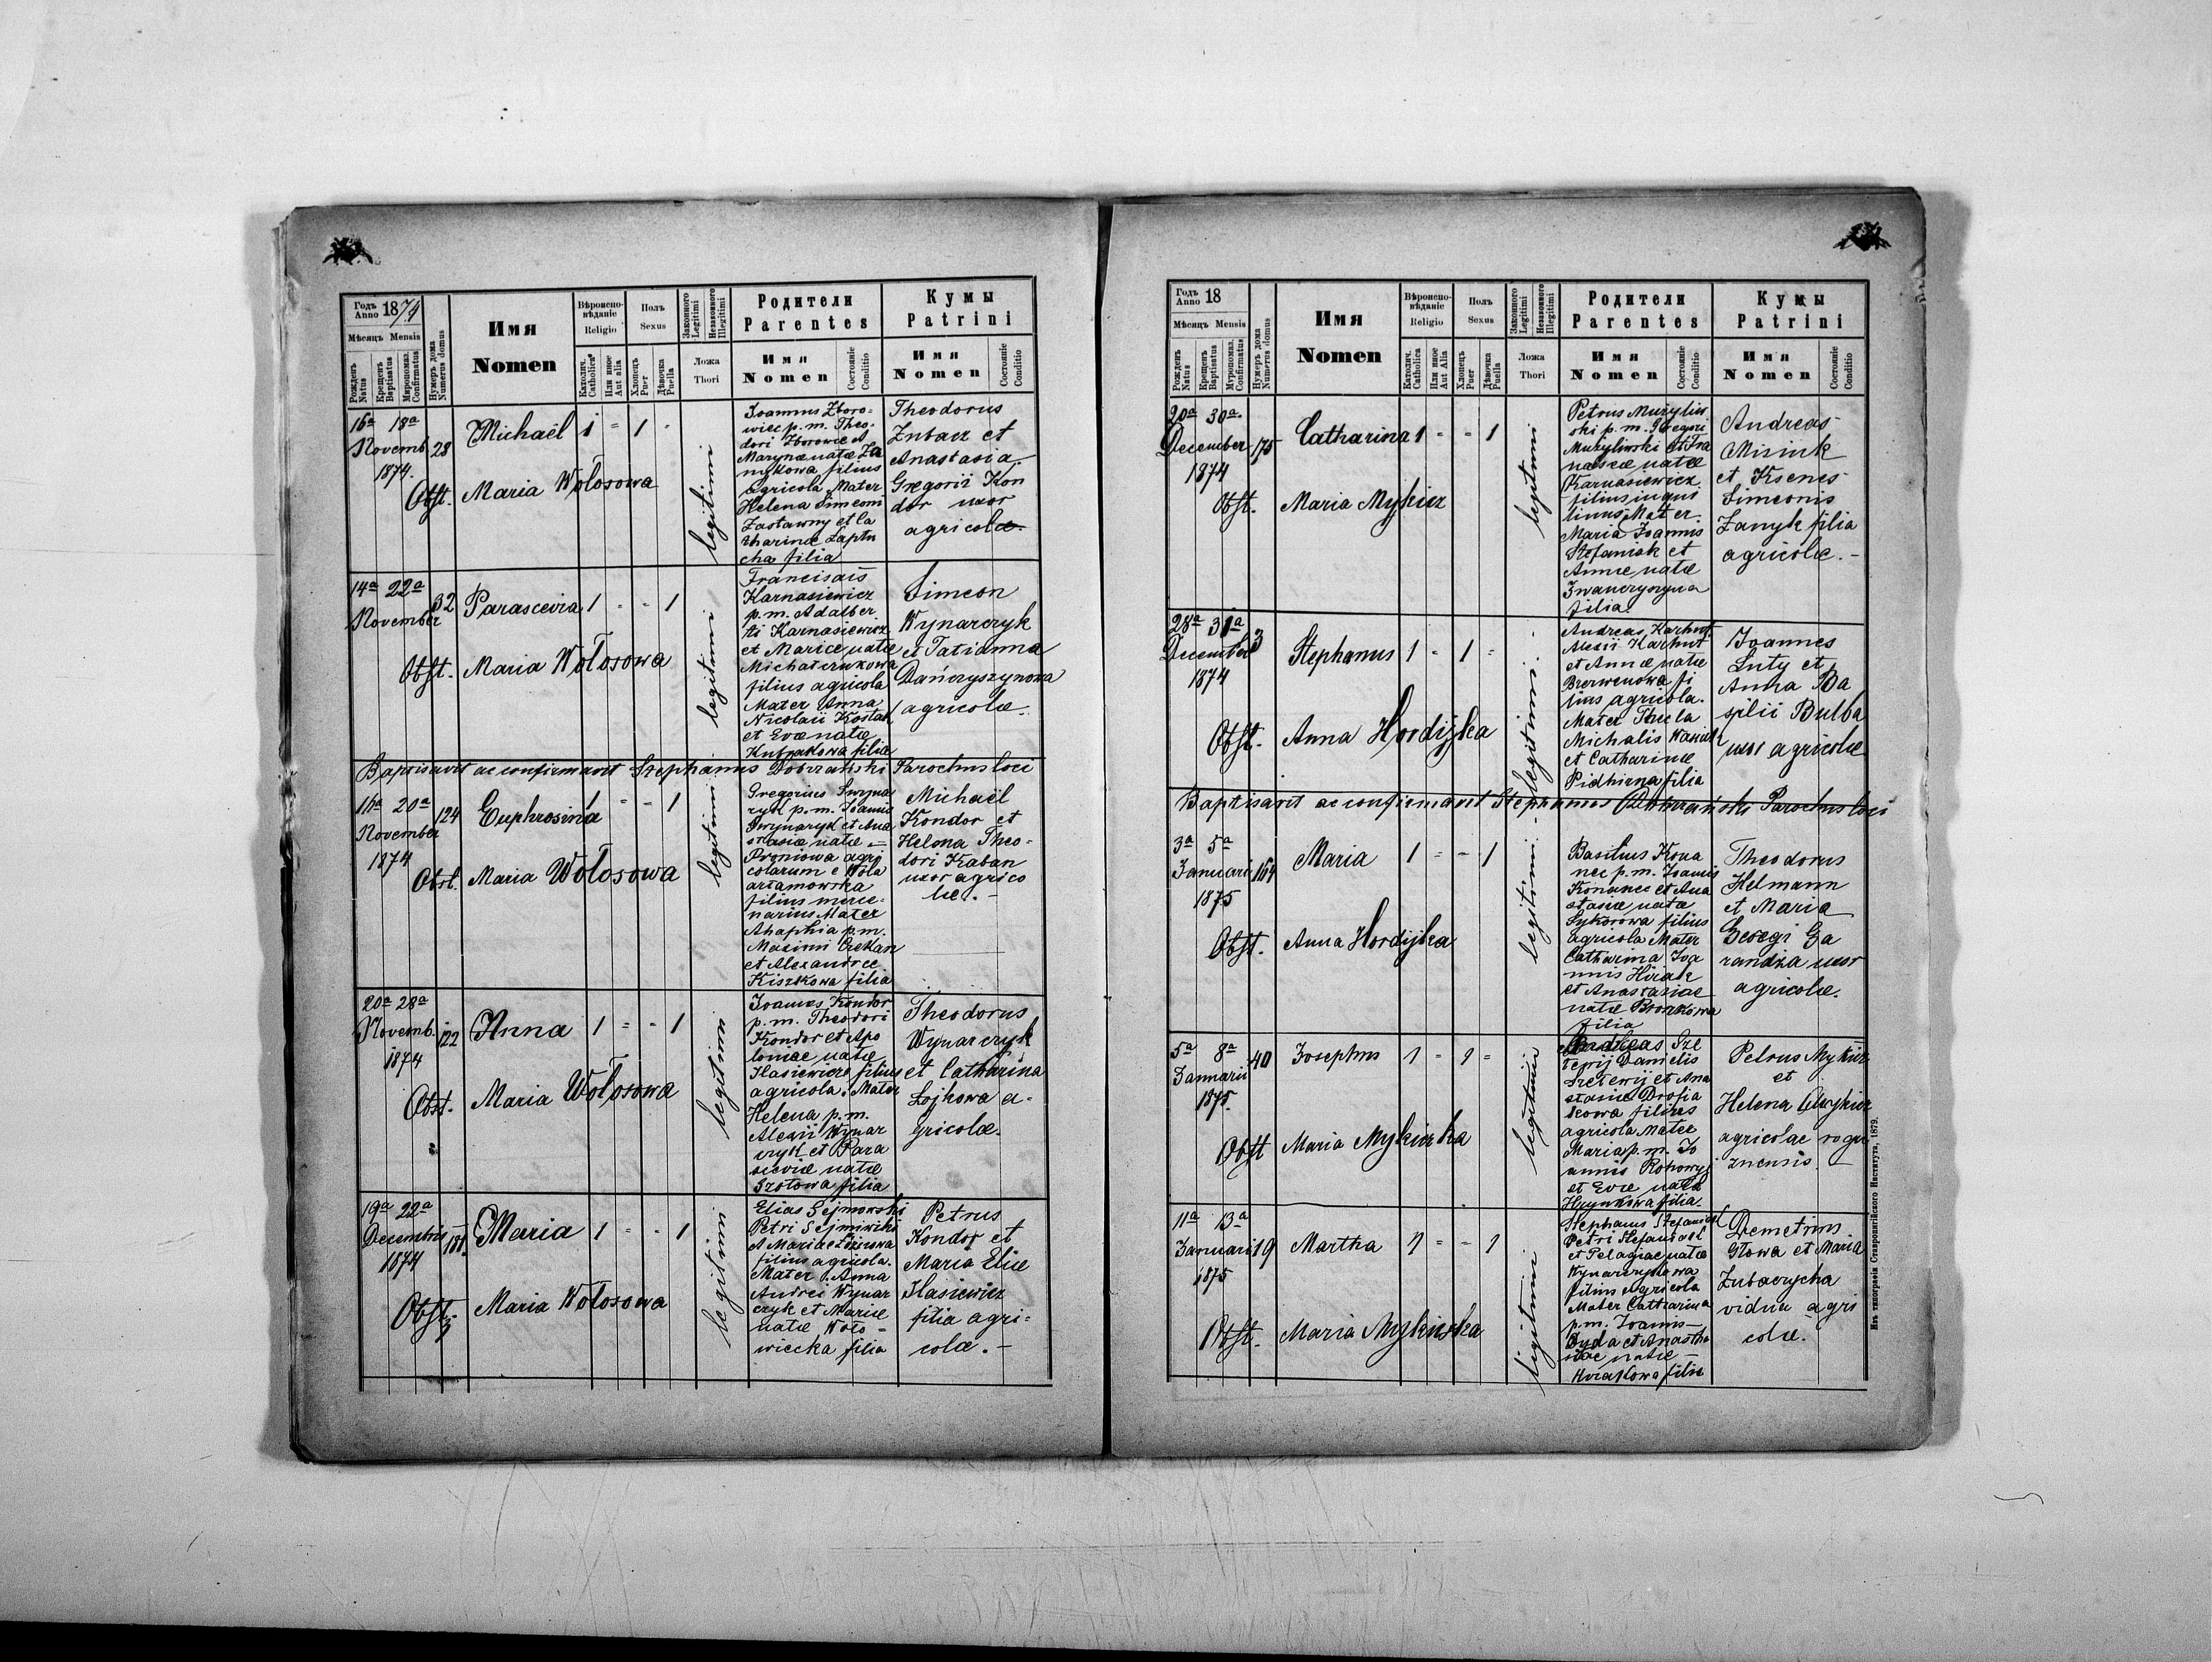 Годъ Anno 1874
Мѣсяцъ Mensis
Рожденъ Natus
Крещенъ Baptisatus
Муропомаз. Confirmatus
Нумеръ дома Numerus domus
Имя
Nomen
Вѣроиспо-
вѣданіе
Religio
Католич. Catholica
Или иное Aut alia
Полъ
Sexus
Хлопецъ Puer
Дѣвочка Puella
Законного Legitimi
Незаконного Illegitimi
Ложа
Thori
Родители
Parentes
Имя
Nomen
Состояніе Conditio
Кумы
Patrini
Имя
Nomen
Состояніе Conditio
16a 18a
Novemb. 28
1874.
Michaël 1 = 1 -
Obst. Maria Wołosowa
legitimi
Joannus Zboro=
wiec p. m. Theo-
dori Zborowce et
Marynæ natæ Za
nykowa filius
agricola, Mater
Helena Simeoni
Zastawny et Ca
tharinæ Łaptu
cha filia
Theodorus
Zubacz et
Anastasia
Gregorii Kon
dor uxor
agricolæ.
14a 22a
November 32
Parascevia 1 = - 1
Obst. Maria Wołosowa
legitimi
Karnasiewicz
p. m. Adalber
ti Karnasiewicz
et Mariæ natæ
filius agricola
Mater Anna
Nicolaii Kostak
et Evæ natæ
filia
Simeon
Wynarczyk
et Tatianna
Dańczyszynowa
agricolæ.
Baptisavit ac confirmavit Stephanus Dobrzański Parochus loci
16a 20a
November 124
1874
Euphrosina 1 = - 1
Obst. Maria Wołosowa
legitimi
Gregorius
p. m. Joannis
et Ana
stasiæ natæ =
Proniowa agri
colarum e Wola
arłamowska
filius merce-
narius Mater
Ahaphia p. m.
Maximi
et Alexandræ
Kiszkowa filia
Michaël
Kondor et
Helena Theo-
dori Kaban
uxor agrico
læ. -
20a 28a
Novemb. 122
1874
Anna 1 = - 1
Obst. Maria Wołosowa
legitimi
Joannes Kondor
p. m. Theodori
Kondor et Apo
loniae natæ
Hasiewicz filius
agricola. Mater
Helena p. m.
Alexii Wynar
czyk et Para
sceviæ natæ
Szotowa filia
Theodorus
Wynarczyk
et Catharina
Łojkowa a-
gricolæ.
19a 22a
Decembris
1874
Maria 1 = - 1
Obst. Maria Wołosowa
legitimi
Elias Sejmowski
Petri
et Mariae
filius agricola.
Mater: Anna
Andrei Wynar
czyk et Mariæ
natæ Woło-
wiecka filia
Petrus
Kondor et
Maria Eliæ
Hasiewicz
filia agri=
colæ. -
Годъ Anno 18
Мѣсяцъ Mensis
Рожденъ Natus
Крещенъ Baptisatus
Муропомаз. Confirmatus
Нумеръ дома Numerus domus
Имя
Nomen
Вѣроиспо-
вѣданіе
Religio
Католич. Catholica
Или иное Aut Alia
Полъ
Sexus
Хлопецъ Puer
Дѣвочка Puella
Законного Legitimi
Незаконного Illegitimi
Ложа
Thori
Родители
Parentes
Имя
Nomen
Состояніе Conditio
Кумы
Patrini
Имя
Nomen
Состояніе Conditio
20a 30a
December 175
1874
Catharina 1 - - 1
Obst. Maria Mykicz
legitimi
Petrus Mużyłow
ski p. m. Gregori
Mużyłowski et
natæ
Karnasiewicz
filius inqui
linus Mater
Maria Joannis
Stefaniak et
Annæ natæ
Iwanczyszyna
filia.
Andreas
Misiuk
et Ksenes
Simeonis
Zanyk filia
agricolæ. -
28a 31a
December 3
1874
Stephanus 1 - 1 =
Obst. Anna Hordijka
legitimi.
Andreas Karhut
Alexii Karhut
et Annæ natæ
Brerwenowa fi
lius agricola.
Mater Thecla
Michalis
et Catharinæ
Pidhirna filia
Joannes
Luty et
Anna Ba
silii Bulba
uxor agricolæ
Baptisavit ac confirmavit Stephanus Dobrzański Parochus loci
3a 5a
Januari 164
1875
Maria 1 = - 1
Obst. Anna Hordijka
legitimi.
Basilius Kona
nec p. m. Joannis
Konanec et Ana
stasiæ natæ
Sykorowa filius
agricola Mater
Catharina Joa
nnis Hirak
et Anastasiae
natæ Bronkowa
filia
Theodorus
Helmann
et Maria
Georgi Ga
randża uxor
agricolæ.
5a 8a
Januarii 40
1875.
Josephus 1 = 1 =
Obst Maria Mykiczka
legitimi
Andreas Sze
tewij Danielis
Szetewij et Ana
stasiæ
filius
agricola Mater
Maria p. m. Jo
annis Rohowyj
et Evæ natæ
filia.
Petrus Mykicz
et
Helena Mykicz
agricolae rogu
znensis
11a 13a
Januari 19
1875
Martha 1 = - 1
Obst. Maria Mykiczka
legitimi
Stephanus Stefaniak
Petri Stefaniak
et Pelagiae natæ
Wynarczykowa
filius Agricola
Mater Catharina
p. m. Joannis
Dyda et Anastha
siae natæ -
Hirakowa filia
Demetrius
Głowa et Maria
Zubaczycha
vidua agri
colæ.
Изъ типографіи Ставропигійского Института, 1879.